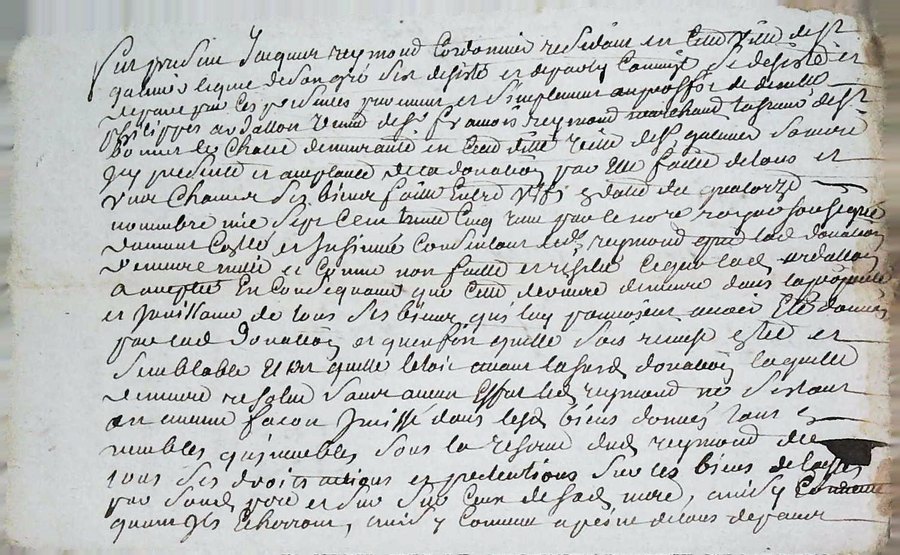 fut presant Jacques reymond Cordonnier residant en Cette ville de st
galmier lequel de son gré sest desisté et departy Comme il se desiste et
depart par ces presentes purement et simplement au proffit de demlle
philippes ardallon veuve de sr francois reymond marchand
bonnet le Chatel demeurante en Cette ditte ville de st galmier sa mere
icy presente et acceptante de la donation par Elle faitte de tous et
uns Chacuns ses biens faitte Entre vifs datté du quatorze
novembre mil sept Cent trente Cinq reçu par le nore royal soussigné
dument Collé et Insinué Consentant led reymond que lad donation
demeure nulle et Comme non faitte et resilié ce que lad ardallon
a accepté En Consequance que Cette derniere demeure dans la proprieté
et Jouissance de tous ses biens quils luy pouvoient avoir Eté donnés
par lad Donation et quenfin quelle soit remise estat et
semblable Etat quelle letoit avant lasusd donation laquelle
demeure resolue sans aucun Effet led reymond ne sestant
en aucune façon Jmissé dans lesd biens donnés tant
meubles quimmeubles sous la reserve dud reymond de
tous ses droits actions et pretentions sur les biens delaissés
par son d pere et sur Ceux de sad mere, ainsy Convenu
quand Ils Echerront, ainsy Convenu a peine de tous depans